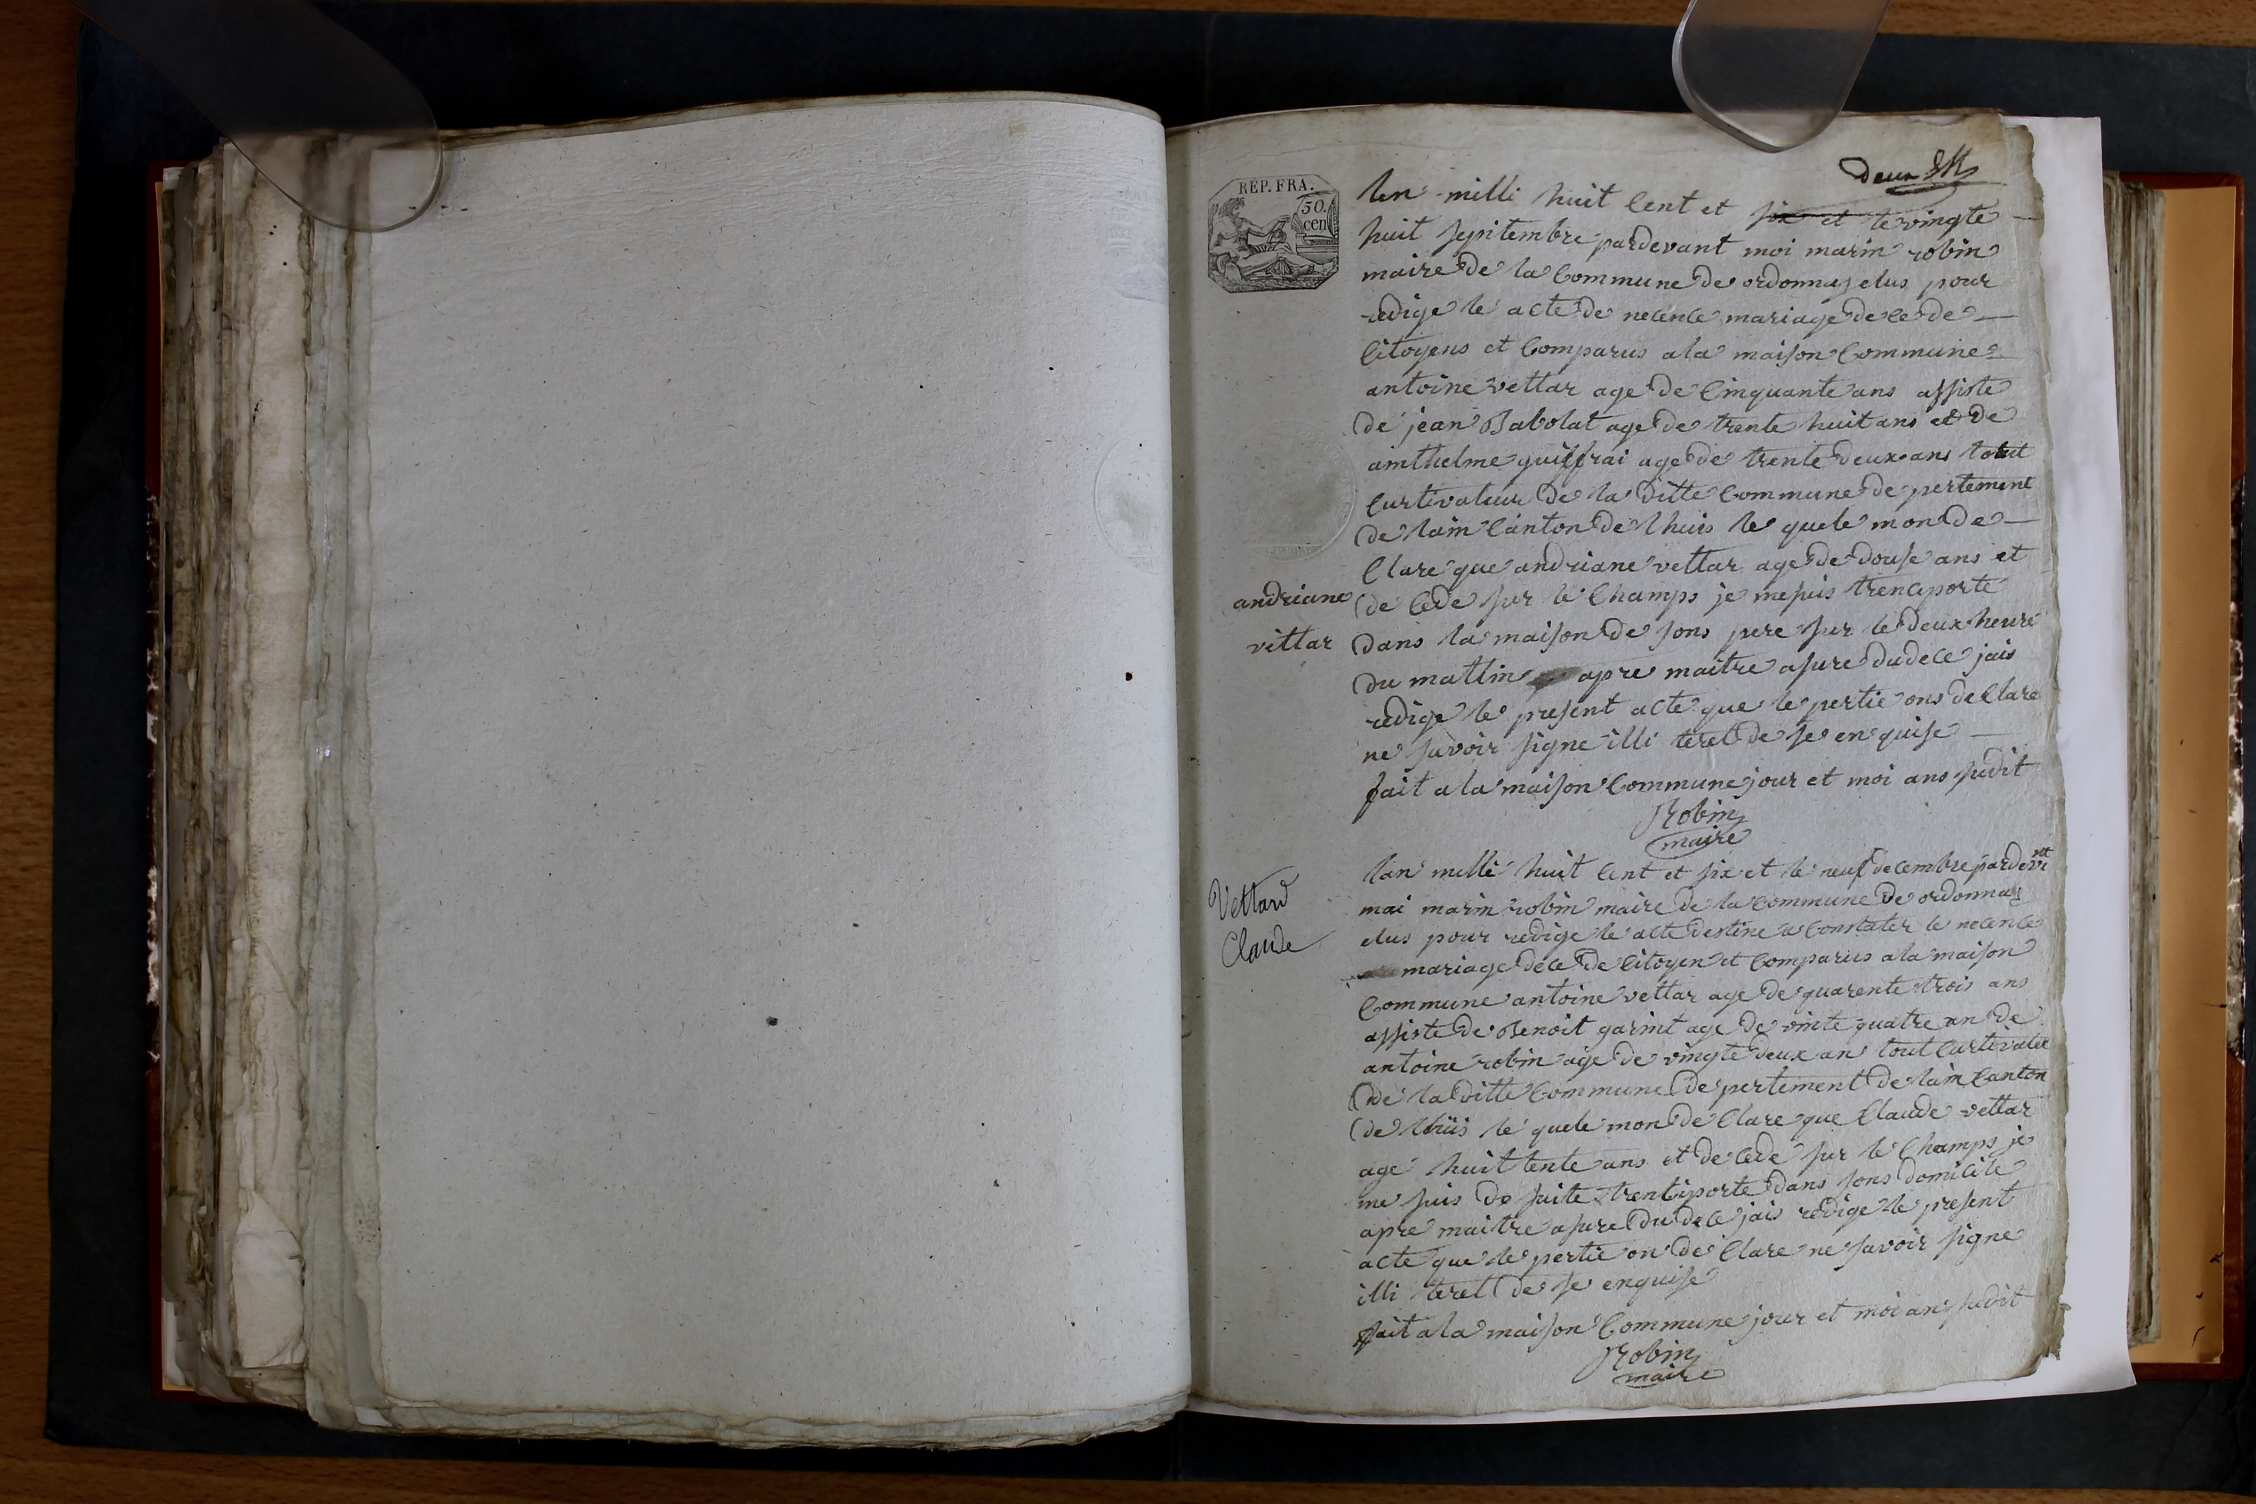 deux
REP. FRA.
50.
cen
len milli huit Cent et six et le vingte
huit sepitembre pardevant moi marin robin
maire de la Commune de ordonnas elus pour
redige le acte de necence mariage de ce de
Citoyens et Comparus a la maison Commune
antoine vettar age de Cinquante ans assiste
de jean Babolat age de trente huit ans et de
aimthelme guiffrai age de trente deux ans tout
Curtivateur de la ditte Commune de pertement
de lain Canton de lhuis le quele mon de
Clare que andriane vettar age de douse ans et
de Cede sur le Champs je me suis trencporte
andriane
vettar
dans la maison de sons pere sur le deux heure
du mattin apre maitre asure du dece jais
redige le present acte que le pertie ons de Clare
ne savoir signe illi terel de se en quise
fait a la maison Commune jour et moi ans sudit
Robin
maire
lan milli huit Cent et six et le neuf decembre pardevt
mai marin robin maire de la Commune de ordonnas
Vettard
Claude
elus pour redige le acte destine a Constater le necence
mariage dece de Citoyen et Comparus a la maison
Commune antoine vettar age de quarente trois ans
assiste de Benoit garint age de vinte quatre an de
antoine robin age de vingte deux an tout Curtivater
de la ditte Commune de pertement de lain Canton
de lhuis le quele mon de Clare que Claude vettar
age huit tente ans et de Cede sur le Champs je
me suis de suite trenciporte dans sons domicile
apre maitre asure du dece jais redige le present
acte que le pertie on de Clare ne savoir signe
illi terel de se enquise
fait a la maison Commune jour et moi ans sudit
Robin
maire